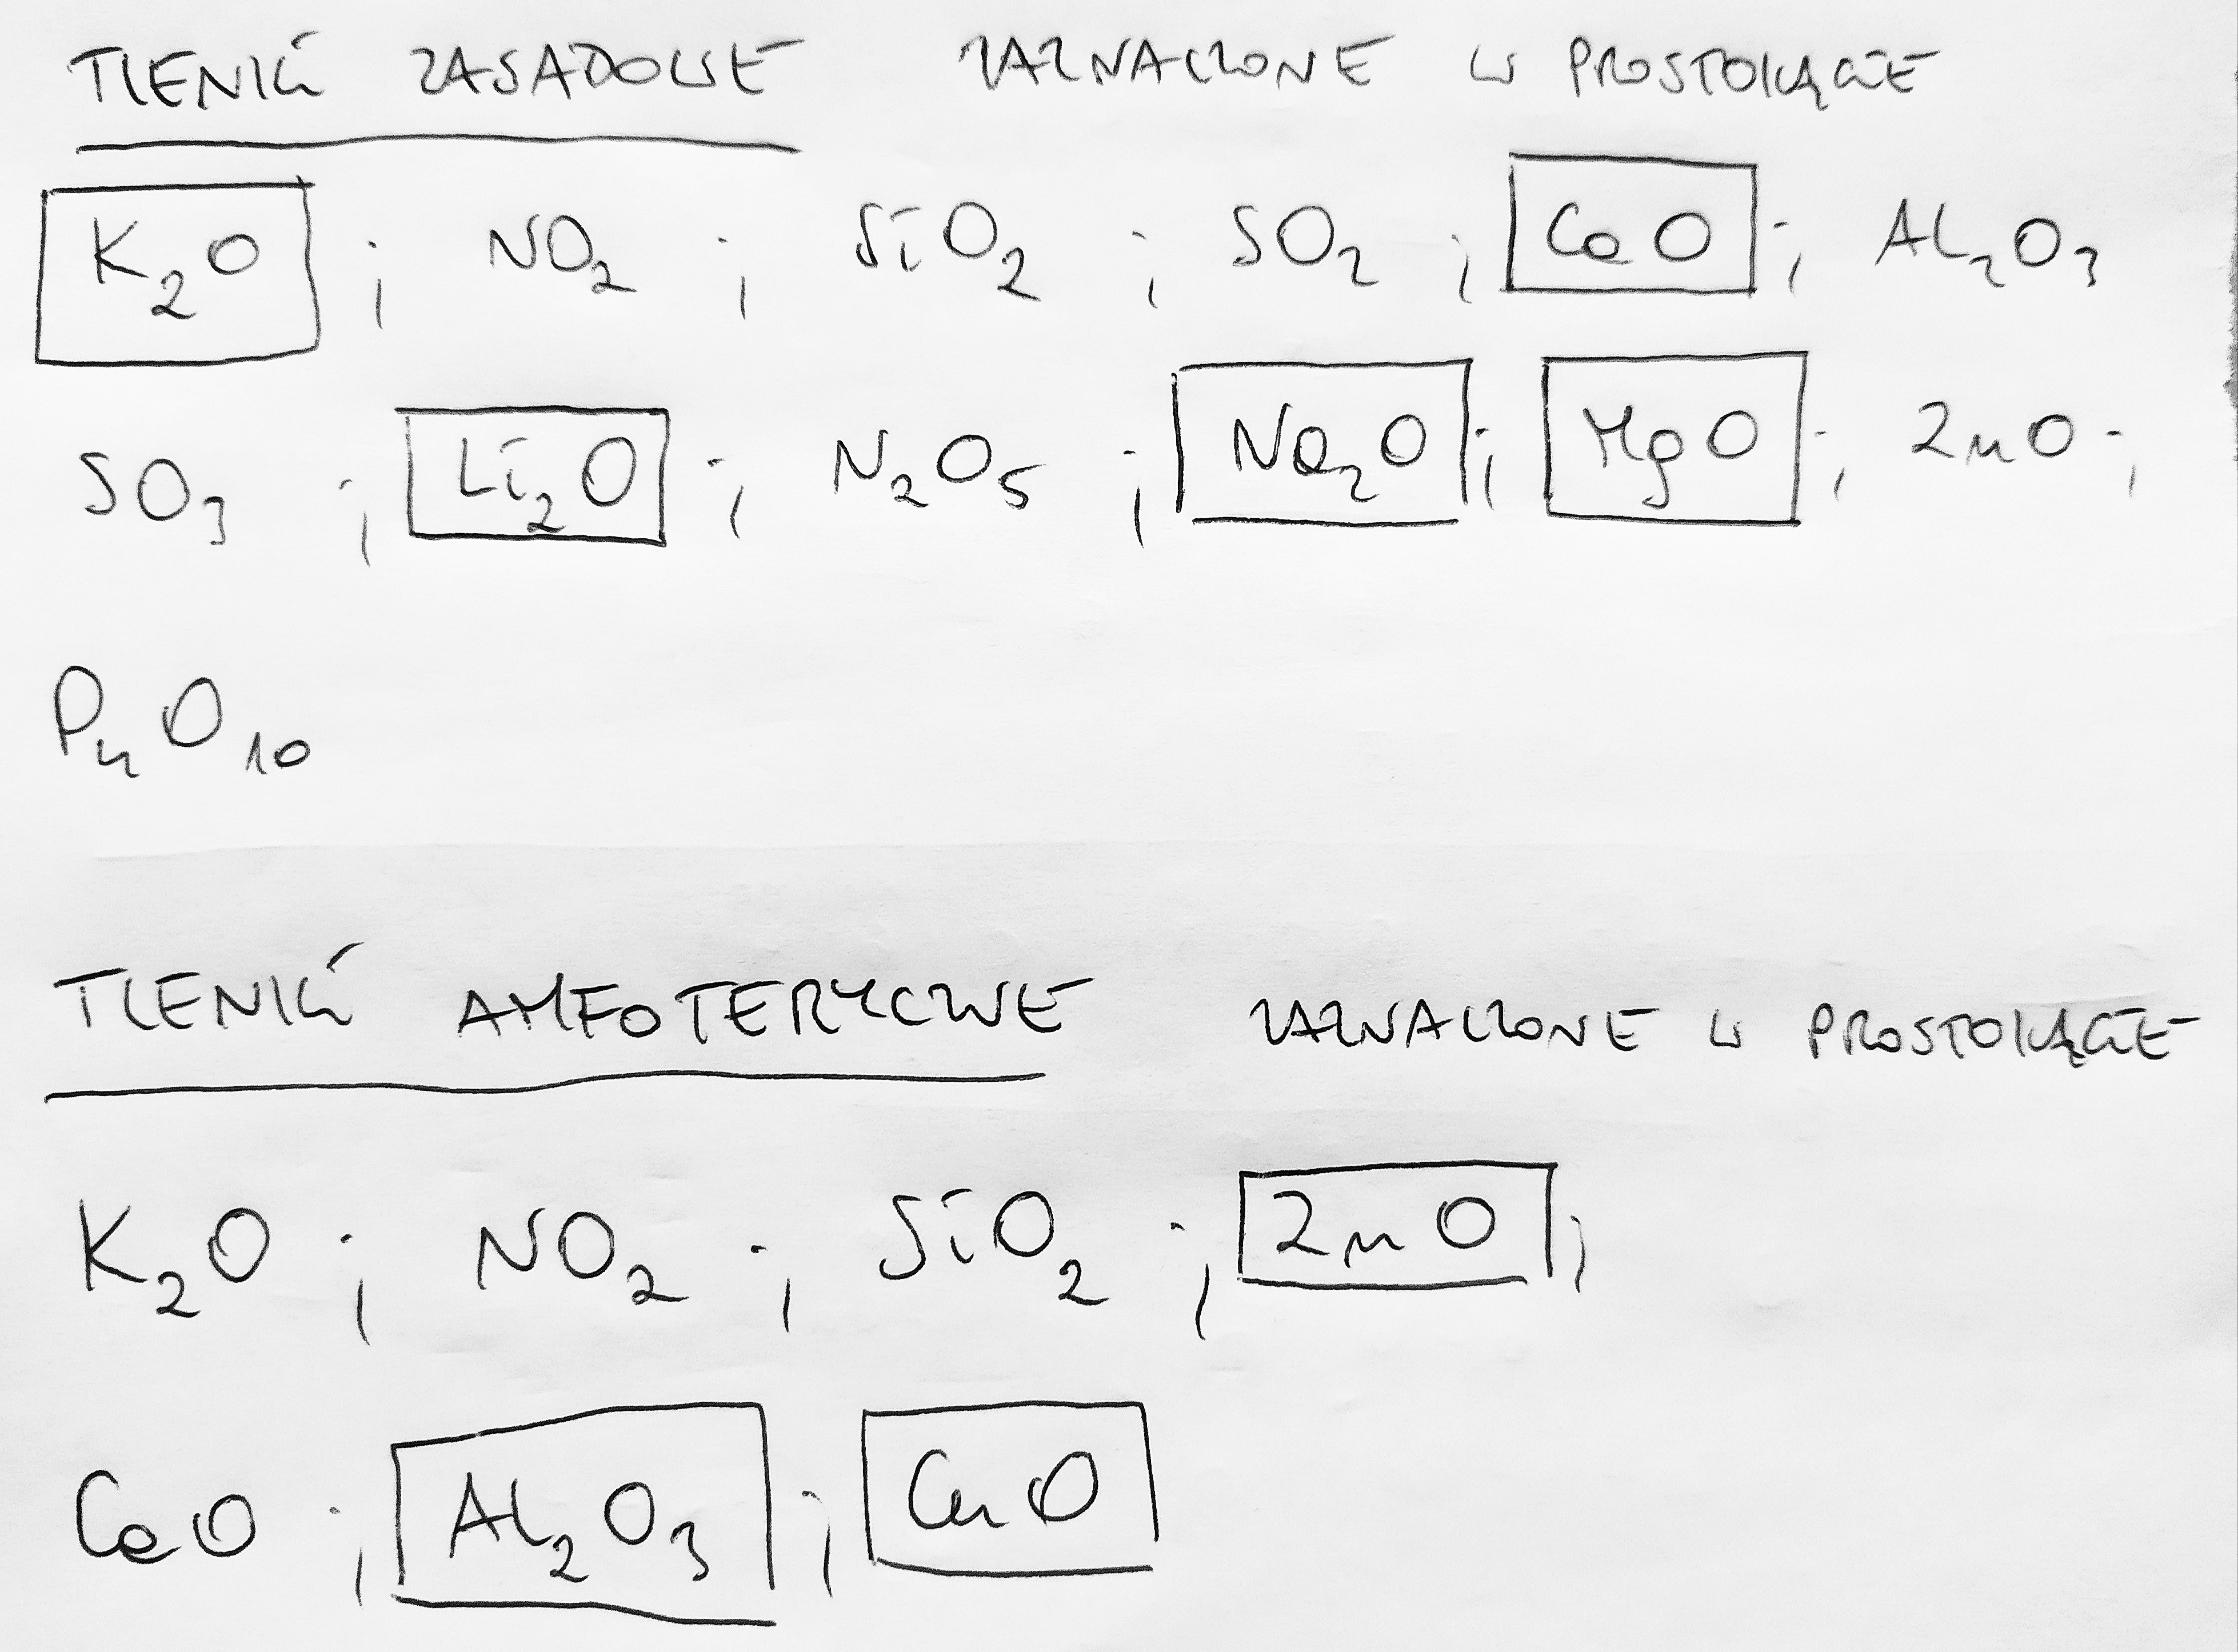 TLENKI ZASADOWE ZAZNACZONE W PROSTOKĄCIE
K₂O ; NO₂ ; SiO₂ ; SO₂ ; CaO ; Al₂O₃
SO₃ ; Li₂O ; N₂O₅ ; Na₂O ; MgO ; ZnO ;
P₄O₁₀
TLENKI AMFOTERYCZNE ZAZNACZONE W PROSTOKĄCIE
K₂O ; NO₂ ; SiO₂ ; ZnO ;
CaO ; Al₂O₃ ; CuO